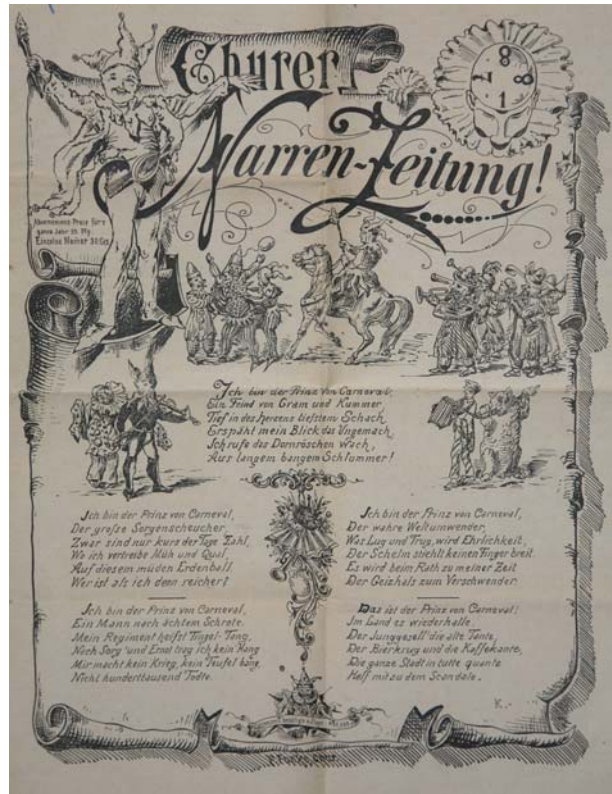 Churer
Narren-Zeitung!
Abonnements Preis für's
ganze Jahr 35 Pfg.
Einzelne Numer 30 Cts.
Ich bin der Prinz von Carneval,
Ein Feind von Gram und Kummer,
Tief in des Herzens tiefstem Schach
Erspäht mein Blick das Ungemach,
Ich rufe das Dornröschen wach,
Aus langem bangem Schlummer!
Ich bin der Prinz von Carneval,
Der große Sorgenscheucher,
Zwar sind nur kurs der Tage Zahl,
Wo ich vertreibe Müh und Qual,
Auf diesem müden Erdenball.
Wer ist als ich denn reicher?
Ich bin der Prinz von Carneval,
Ein Mann nach ächtem Schrote.
Mein Regiment heißt Tingel-Tang,
Nach Sorg' und Ernst trag ich kein Hang
Mir macht kein Krieg, kein Teufel bang,
Nicht hunderttausend Todte.
Ich bin der Prinz von Carneval,
Der wahre Weltumwender,
Was Lug und Trug, wird Ehrlichkeit,
Der Schelm stiehlt keinen Finger breit.
Es wird beim Rath zu meiner Zeit
Der Geizhals zum Verschwender.
Das ist der Prinz von Carneval!
Im Land es wiederhalle.
Der Junggesell' die alte Tante,
Der Bierkrug und die Kaffekante,
Die ganze Stadt in tutte quante
Helf mit zu dem Scandale.
K.